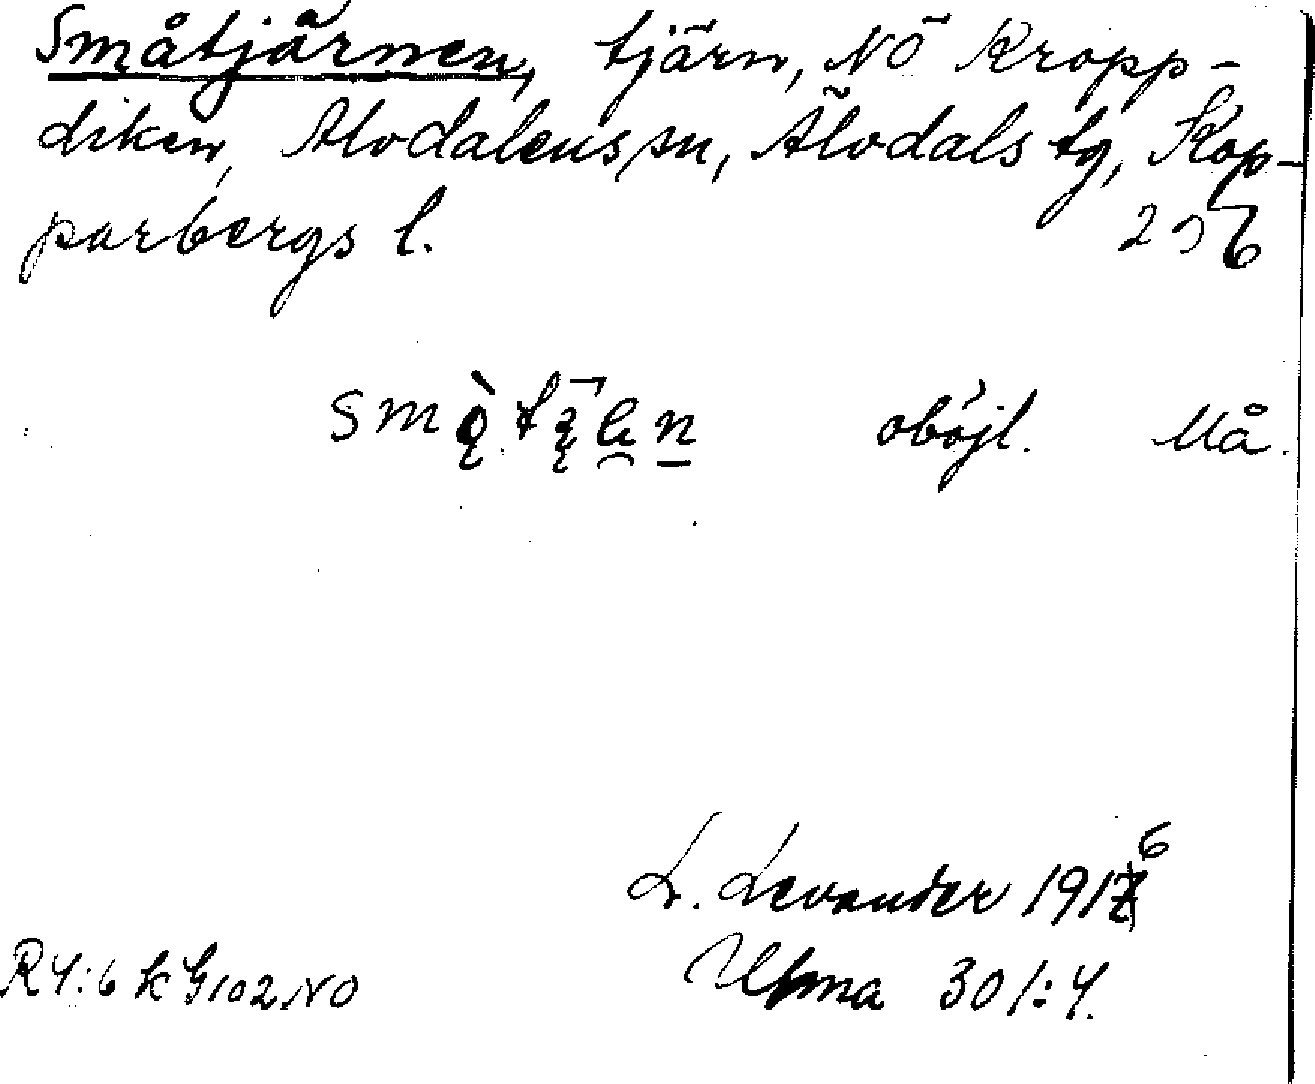 Småtjärnen, tjärn, NÖ Kropp-
diken, Älvdalens sn, Älvdals tg, Kop-
parbergs l.
oböjl. Må.
L. Levander 1916
Ulma 301:4.
R4:6 k G102 NO